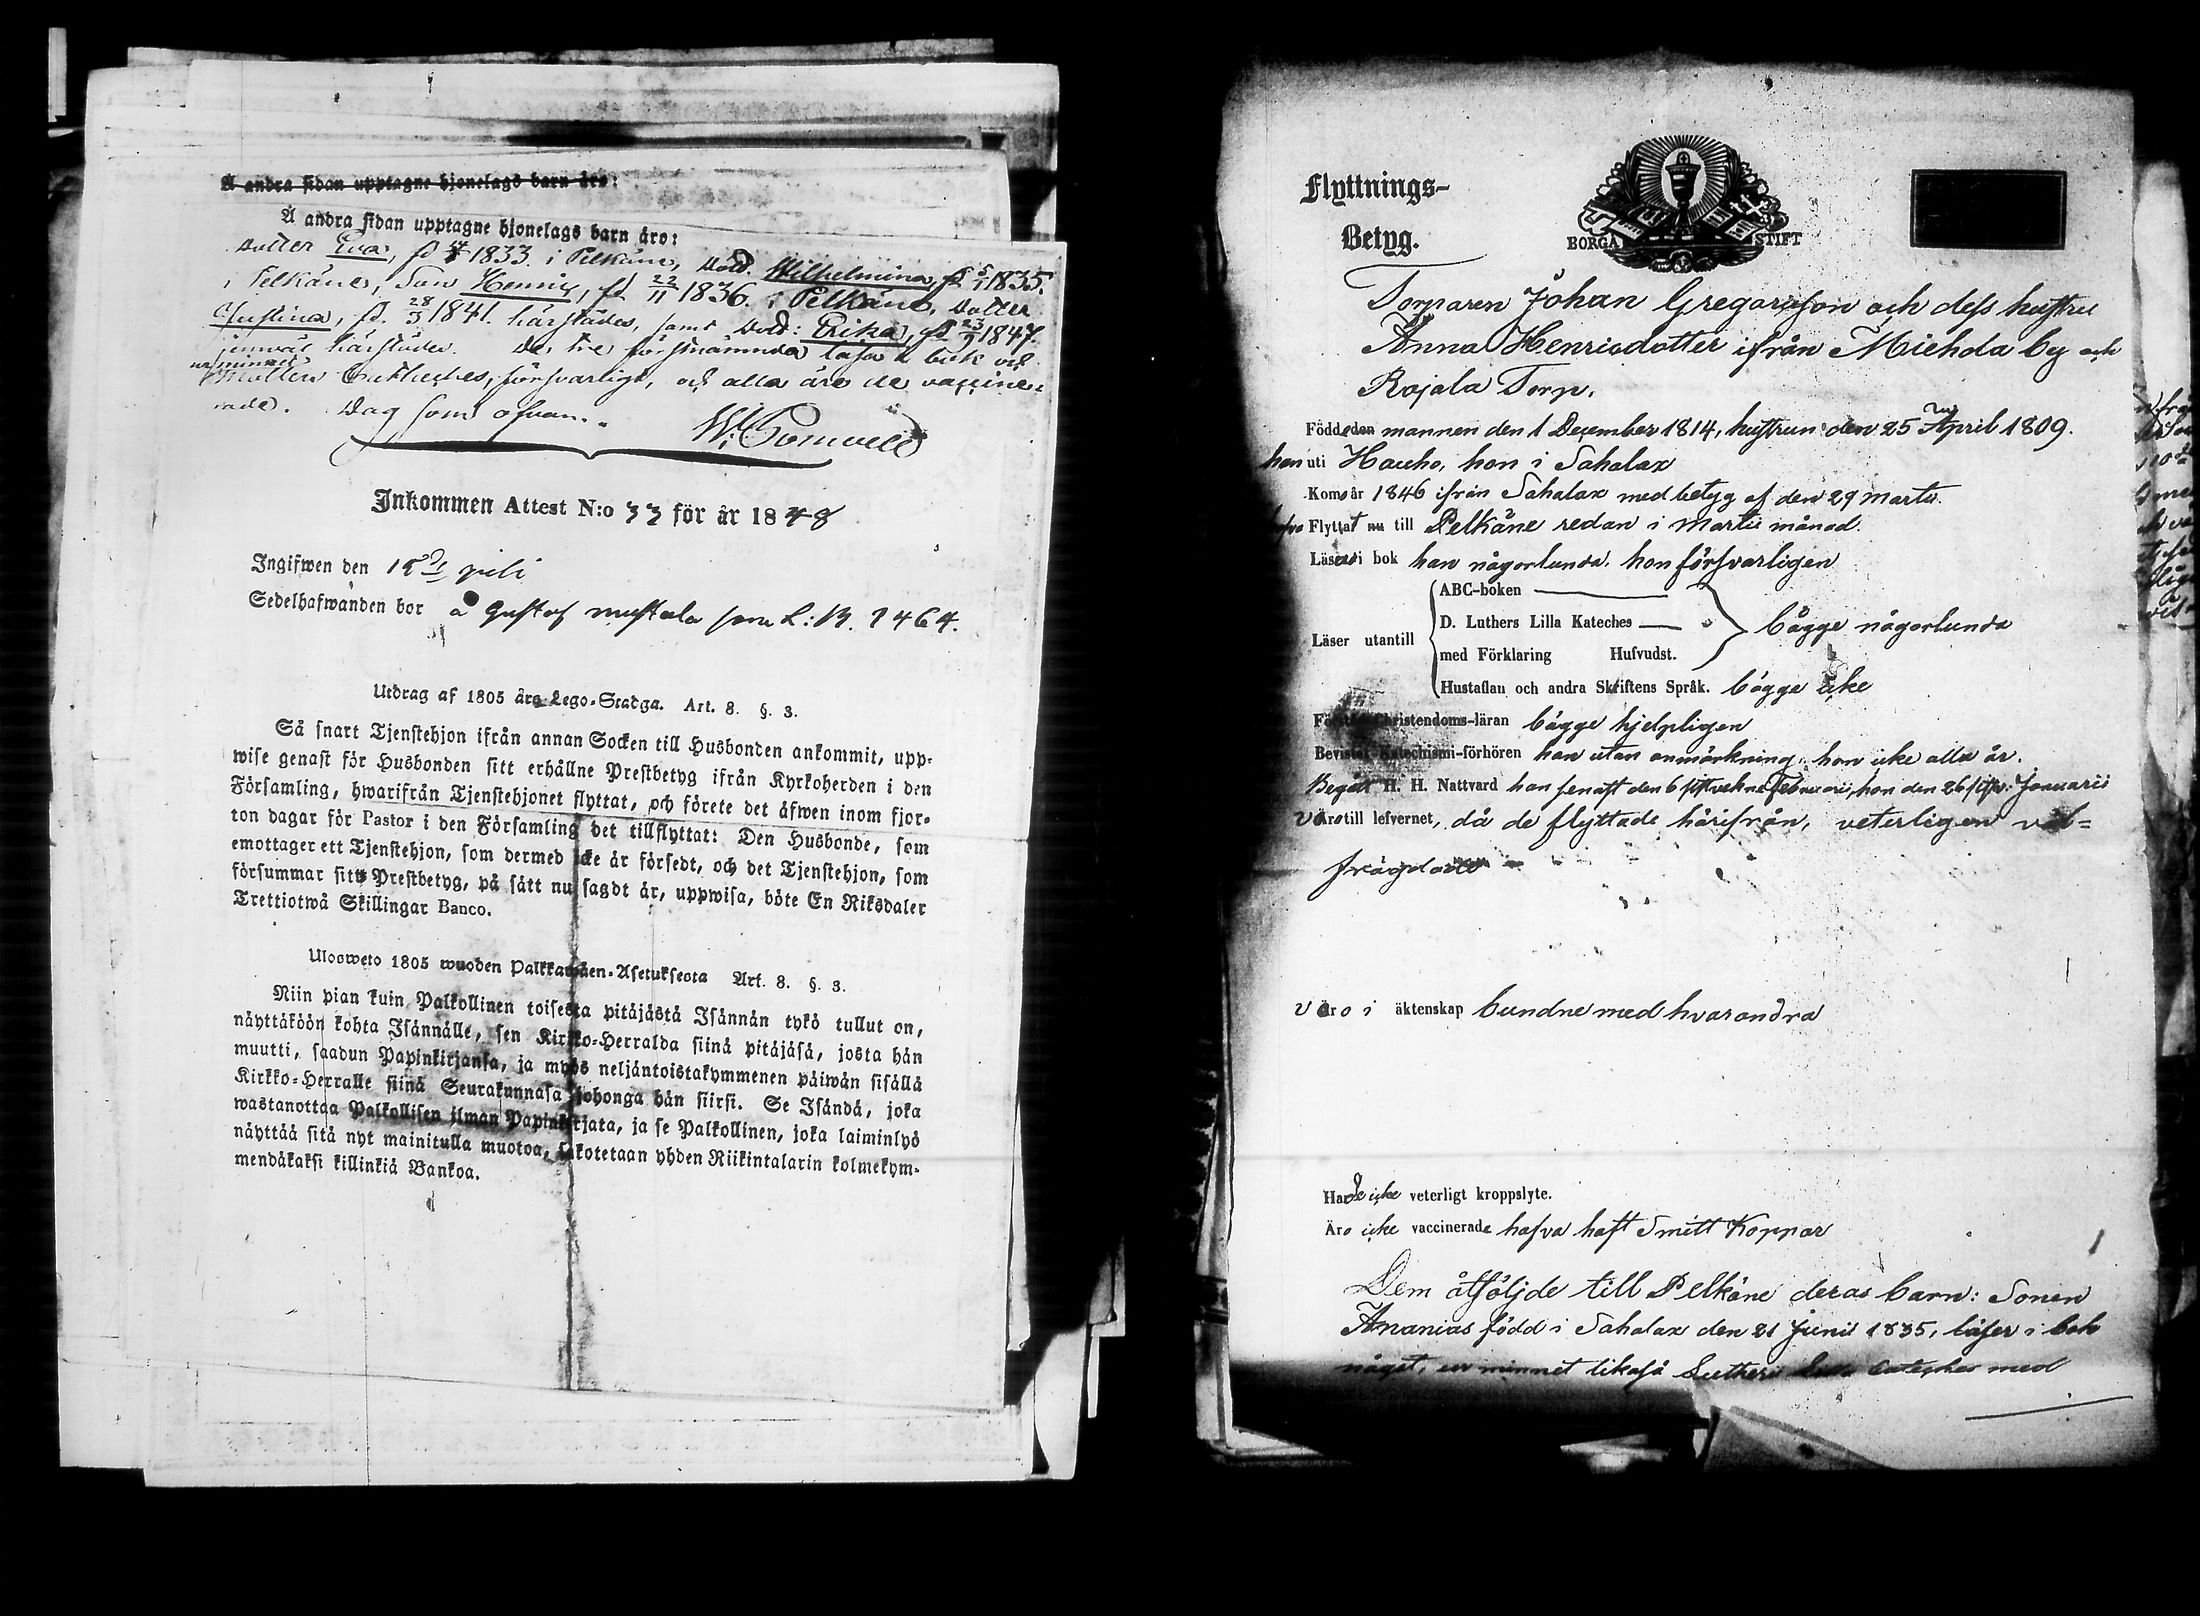 Å andra sidan upptagne hjonelags barn äro:
Å andra sidan upptagne hjonelags barn äro:
Dotter Eva, fd 1833 i Pelkäne, Dott. Wilhelmina, fd 5/1 1835.
i Pelkäne, Son Henric, fd 22/11 1836 i Pelkäne, Dotter
Justina, fd. 28/3 1841. härstädes, samt Dott: Erika, fd 23/9 1847
härstädes. De tre förstnämnda läsa i bok och
Catheches, försvarligt, och alla äro de vaccine-
rade. Dag som ofvan.
Inkommen Attest N:o 33 för år 1848
Ingifwen den
Sedelhafwanden bor å Gustaf Mustala
Utdrag af 1805 års Lego-Stadga. Art. 8. §. 3.
Så snart Tjenstehjon ifrån annan Socken till Husbonden ankommit, upp-
wise genast för Husbonden sitt erhållne Prestbetyg ifrån Kyrkoherden i den
Församling, hwarifrån Tjenstehjonet flyttat, och förete det äfwen inom fjor-
ton dagar för Pastor i den Församling det tillflyttat: Den Husbonde, som
emottager ett Tjenstehjon, som dermed icke är försedt, och det Tjenstehjon, som
försummar sitt Prestbetyg, på sätt nu sagdt är, uppwisa, böte En Riksdaler
Trettiotwå Skillingar Banco.
Ulosweto 1805 wuoden Palkkawäen-Asetuksesta Art. 8. §. 3.
Niin pian kuin Palkollinen toisesta pitäjästä Isännän tykö tullut on,
näyttäköön kohta Isännälle, sen Kirkko-Herralda siinä pitäjäsä, josta hän
muutti, saadun Papinkirjansa, ja myös neljäntoistakymmenen päiwän sisällä
Kirkko-Herralle siinä Seurakunnasa johonga hän siirsi. Se Isändä, joka
wastanottaa Palkollisen ilman Papinkirjata, ja se Palkollinen, joka laiminlyö
näyttää sitä nyt mainitulla muotoa, sakotetaan yhden Riikintalarin kolmekym-
mendäkaksi killinkiä Bankoa.
Flyttnings-
Betyg.
BORGÅ STIFT
Torparen Johan Gregorisson och dess hustru
Anna Henricsdotter ifrån Miehola by och
Rajala Torp.
Födde den mannen den 1 December 1814, hustrun den 25 April 1809.
han uti Hauho, hon i Sahalax
Kom år 1846 ifrån Sahalax med betyg af den 29 Martii.
Flyttat nu till Pelkäne redan i Martii månad.
Läser i bok han någorlunda, hon försvarligen
ABC-boken
Läser utantill
D. Luthers Lilla Kateches
bägge någorlunda
med Förklaring Hufvudst.
Hustaflan och andra Skriftens Språk. bägge icke
Förstår Christendoms-läran bägge hjelpligen
Bevistat Katechismi-förhören han utan anmärkning, hon icke alla år.
Begått H. H. Nattvard han senast den 6 sistvekne Februarii, hon den 26 sistv: Januarii
Voro till lefvernet, då de flyttade härifrån, veterligen väl-
frägdade
Voro i äktenskap bundne med hvarandra
Hade icke veterligt kroppslyte.
Äro icke vaccinerade hafva haft Smitt Koppor
Dem åtföljde till Pelkäne deras barn: Sonen
Ananias född i Sahalax den 21 Junii 1835, läser i bok
något, ur minnet likaså Lutheri Lilla Cateches med